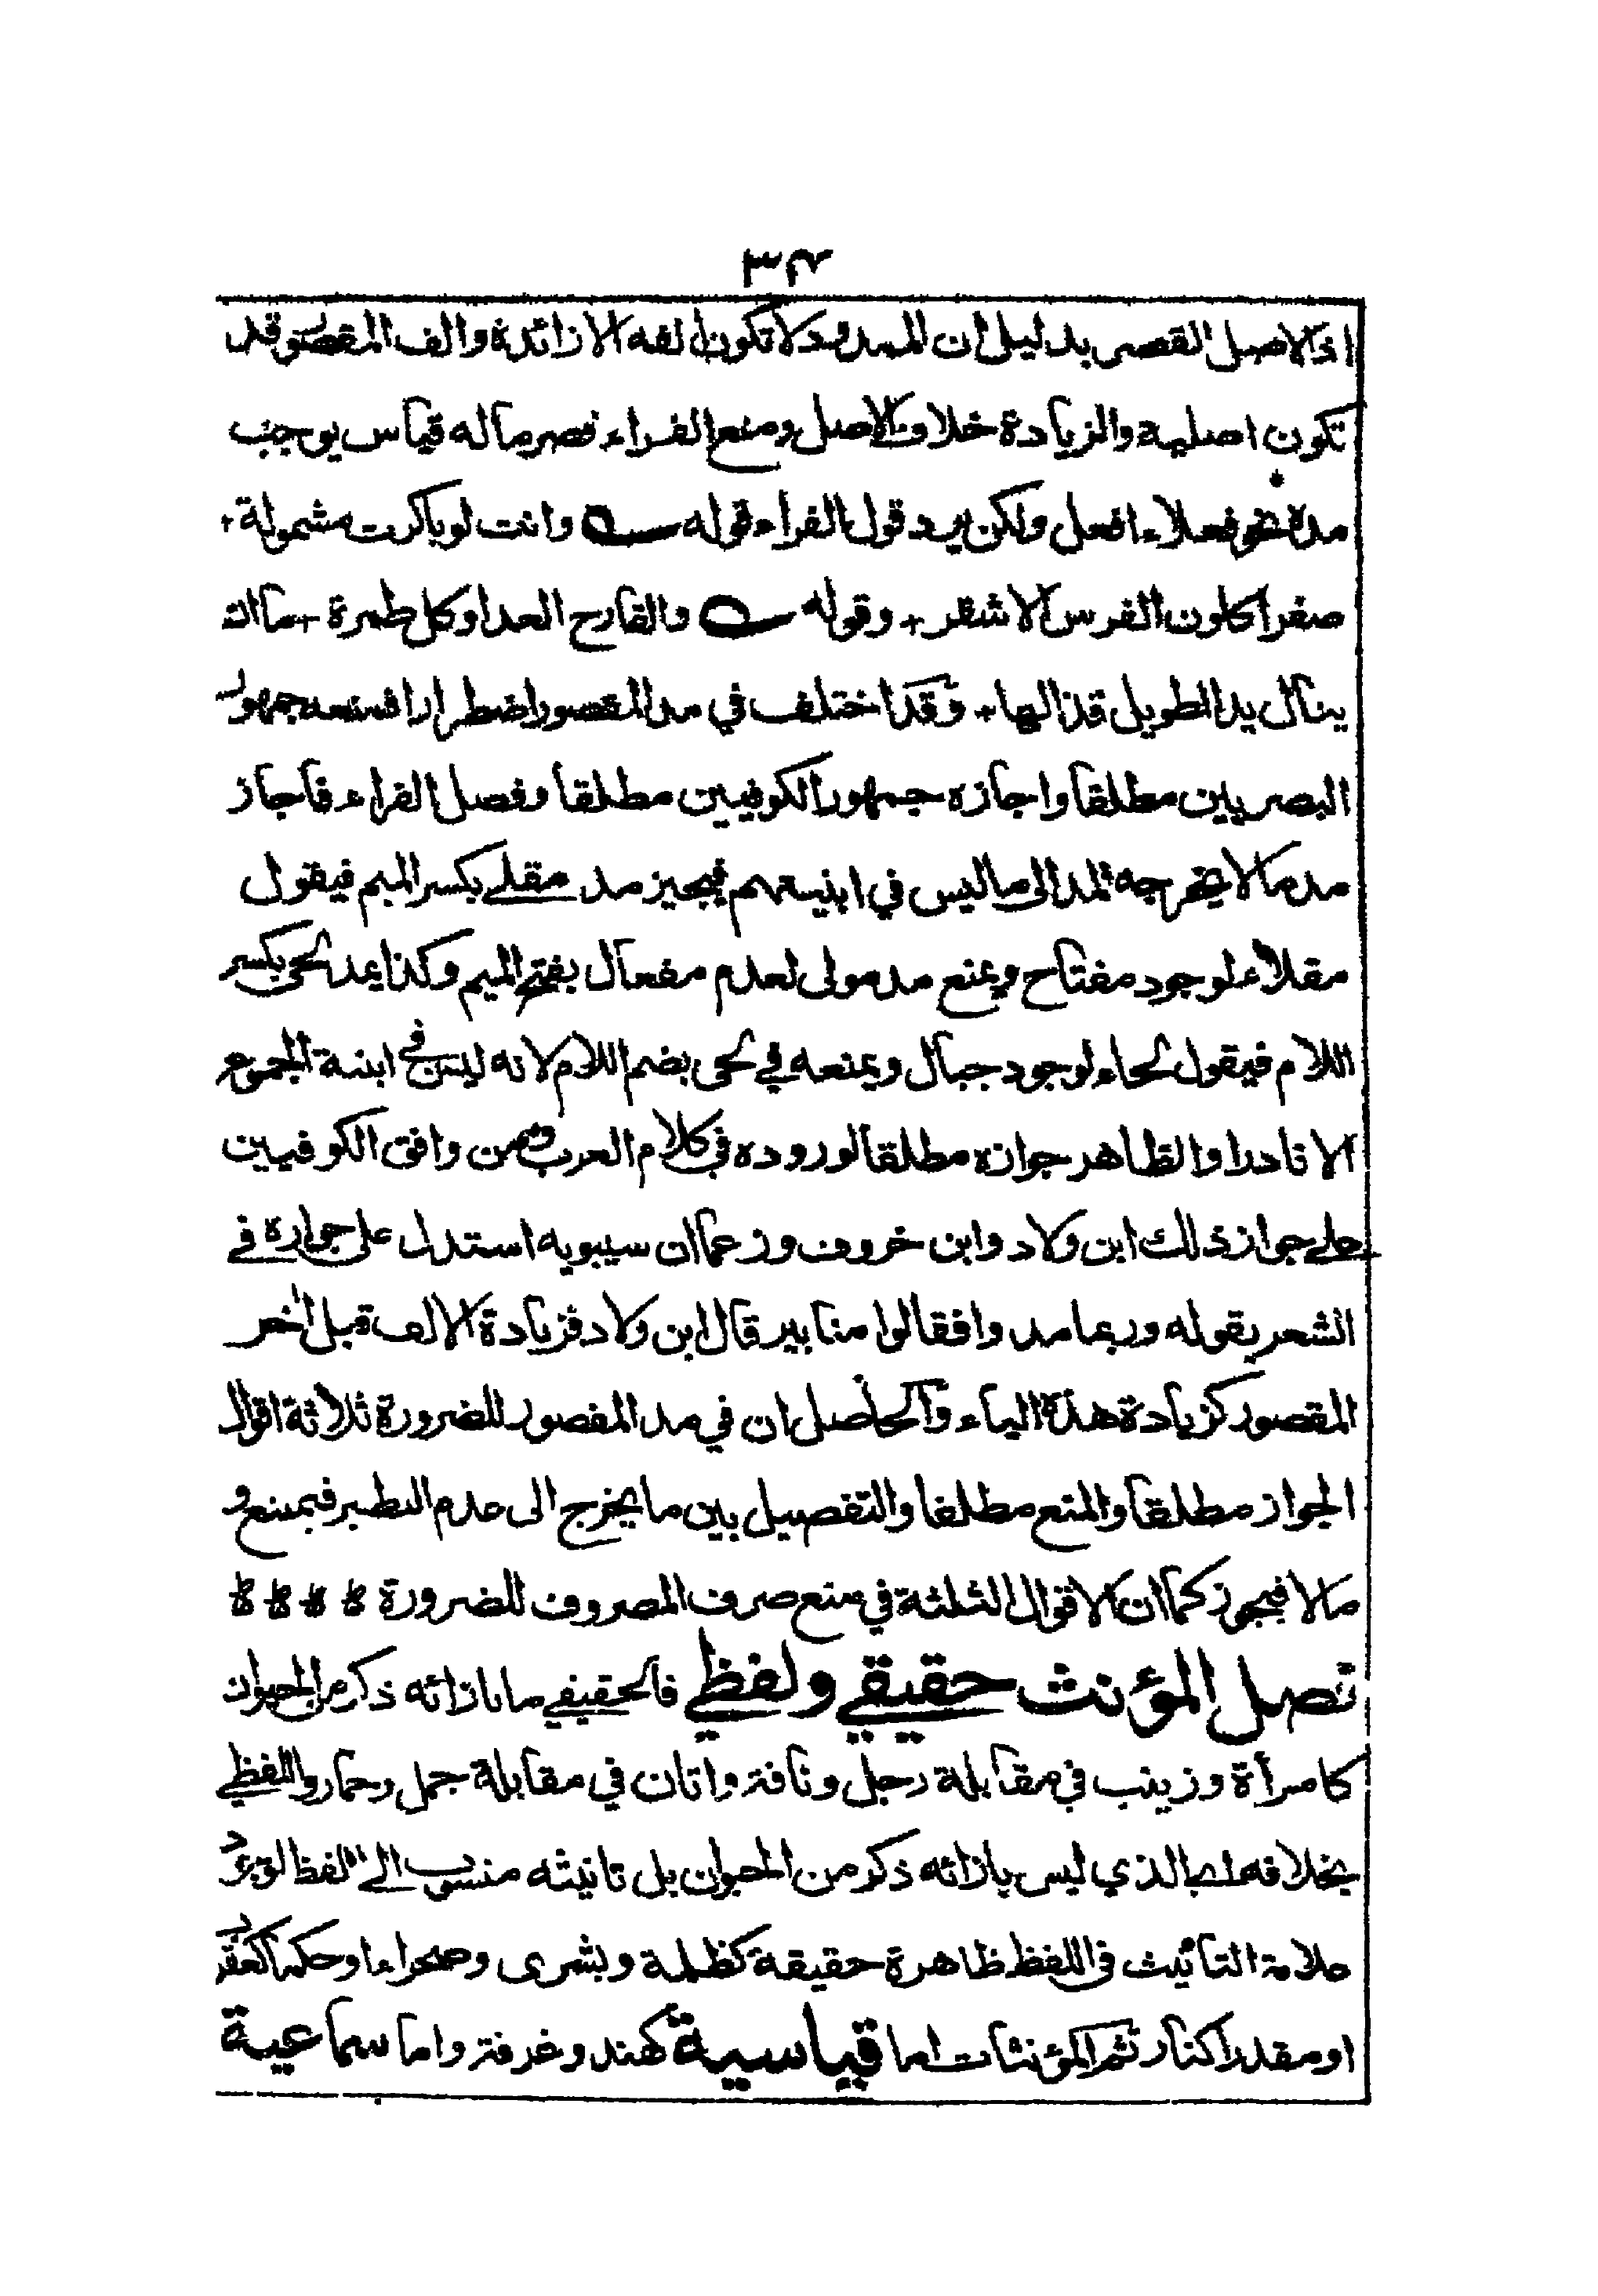 اذ الاصل القصر بدليل ان الممدود لا تكون الفه الا زائدة والف المقصور قد
تكون اصلية والزيادة خلاف الاصل ومنع الفراء قصر ما له قياس يوجب
مده نحو فعلاء افعل ولكن يرد قول الفراء قوله وانت لو باكرت مشمولة +
صفرا كلون الفرس الاشقر + وقوله والقارح العدا وكل طمرة + ما ان
ينال يدا لطويل قذالها + وقد اختلف في مد المقصور اضطرارا فمنعه جمهور
البصريين مطلقا واجازه جمهور الكوفيين مطلقا وفصل الفراء فاجاز
مد ما لا يخرجه المد الى ما ليس في ابنيتهم فيجيز مد مقلے بكسر الميم فيقول
مقلاء لوجود مفتاح ويمنع مد مولى لعدم مفعال بفتح الميم وكذا يمد لحى بكسر
اللام فيقول لحاء لوجود جبال ويمنعه في لحى بضم اللام لانه ليس في ابنية الجموع
الا نادرا والظاهر جوازه مطلقا لوروده في كلام العرب وممن وافق الكوفيين
علے جواز ذلك ابن ولاد وابن خروف وزعما ان سيبويه استدل على جوازه في
الشعر بقوله وربما مد وافقالوا منابير قال ابن ولاد فزيادة الالف قبل اخر
المقصور كزيادة هذه الياء والحاصل ان في مد المقصور للضرورة ثلاثة اقوال
الجواز مطلقا والمنع مطلقا والتفصيل بين ما يخرج الى عدم النظير فيمنع و
ما لا فيجوز كما ان الاقوال الثلثة في منع صرف المصروف للضرورة
فصل المؤنث حقيقے ولفظي فالحقيقے ما بازائه ذكر من الحيوان
كامرأة وزينب في مقابلة رجل وناقة واتان في مقابلة جمل وحمار واللفظي
بخلافه اي الذي ليس بازائه ذكر من الحيوان بل تانيثه منسوب الے اللفظ لوجود
علامة التأنيث في اللفظ ظاهرة حقيقة كظلمة وبشرى وصحراء او حكما كعقرب
او مقدرا كنار ثم المؤنثات اما قياسية كهند وغرفة واما سماعية